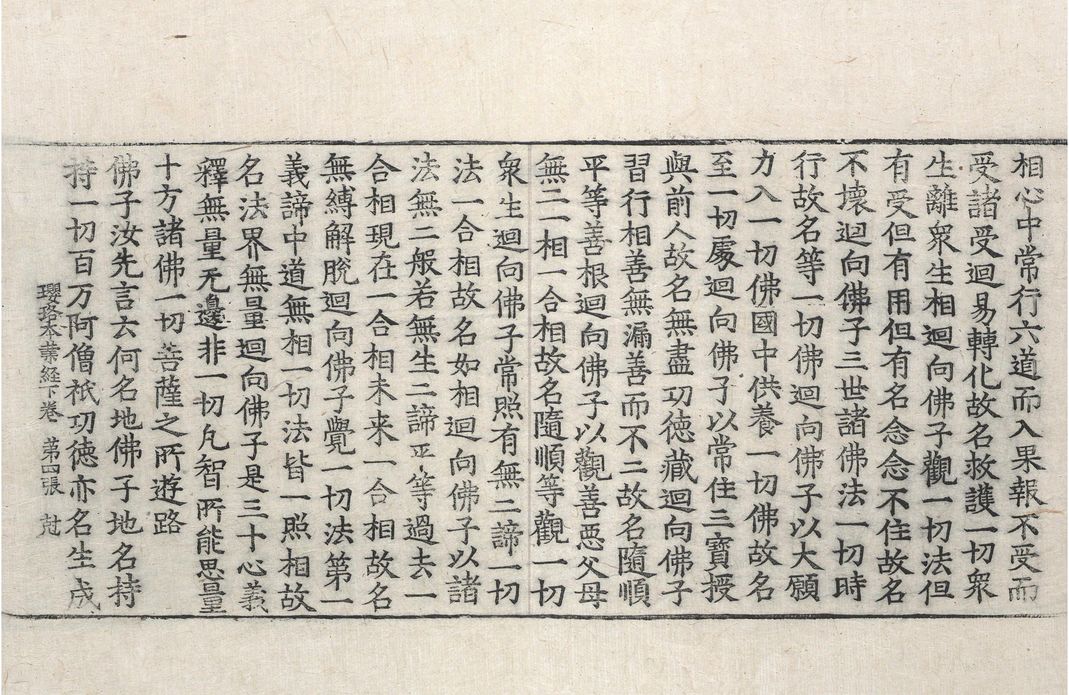 相心中常行六道而入果報不受而
受諸受迴易轉化故名救護一切衆
生離衆生相迴向佛子觀一切法但
有受但有用但有名念念不住故名
不壞迴向佛子三世諸佛法一切時
行故名等一切佛迴向佛子以大願
力入一切佛國中供養一切佛故名
至一切處迴向佛子以常住三寶授
與前人故名無盡功德藏迴向佛子
習行相善無漏善而不二故名隨順
平等善根迴向佛子以觀善惡父母
無二一相一合相故名隨順等觀一切
衆生迴向佛子常照有無二諦一切
法一合相故名如相迴向佛子以諸
法無二般若無生二諦平等過去一
合相現在一合相未来一合相故名
無縛解脫迴向佛子覺一切法第一
義諦中道無相一切法皆一照相故
名法界無量迴向佛子是三十心義
釋無量无邊非一切凡智所能思量
十方諸佛一切菩薩之所遊路
佛子汝先言云何名地佛子地名持
持一切百万阿僧祇功德亦名生成
瓔珞本業経下卷 第四張 尅